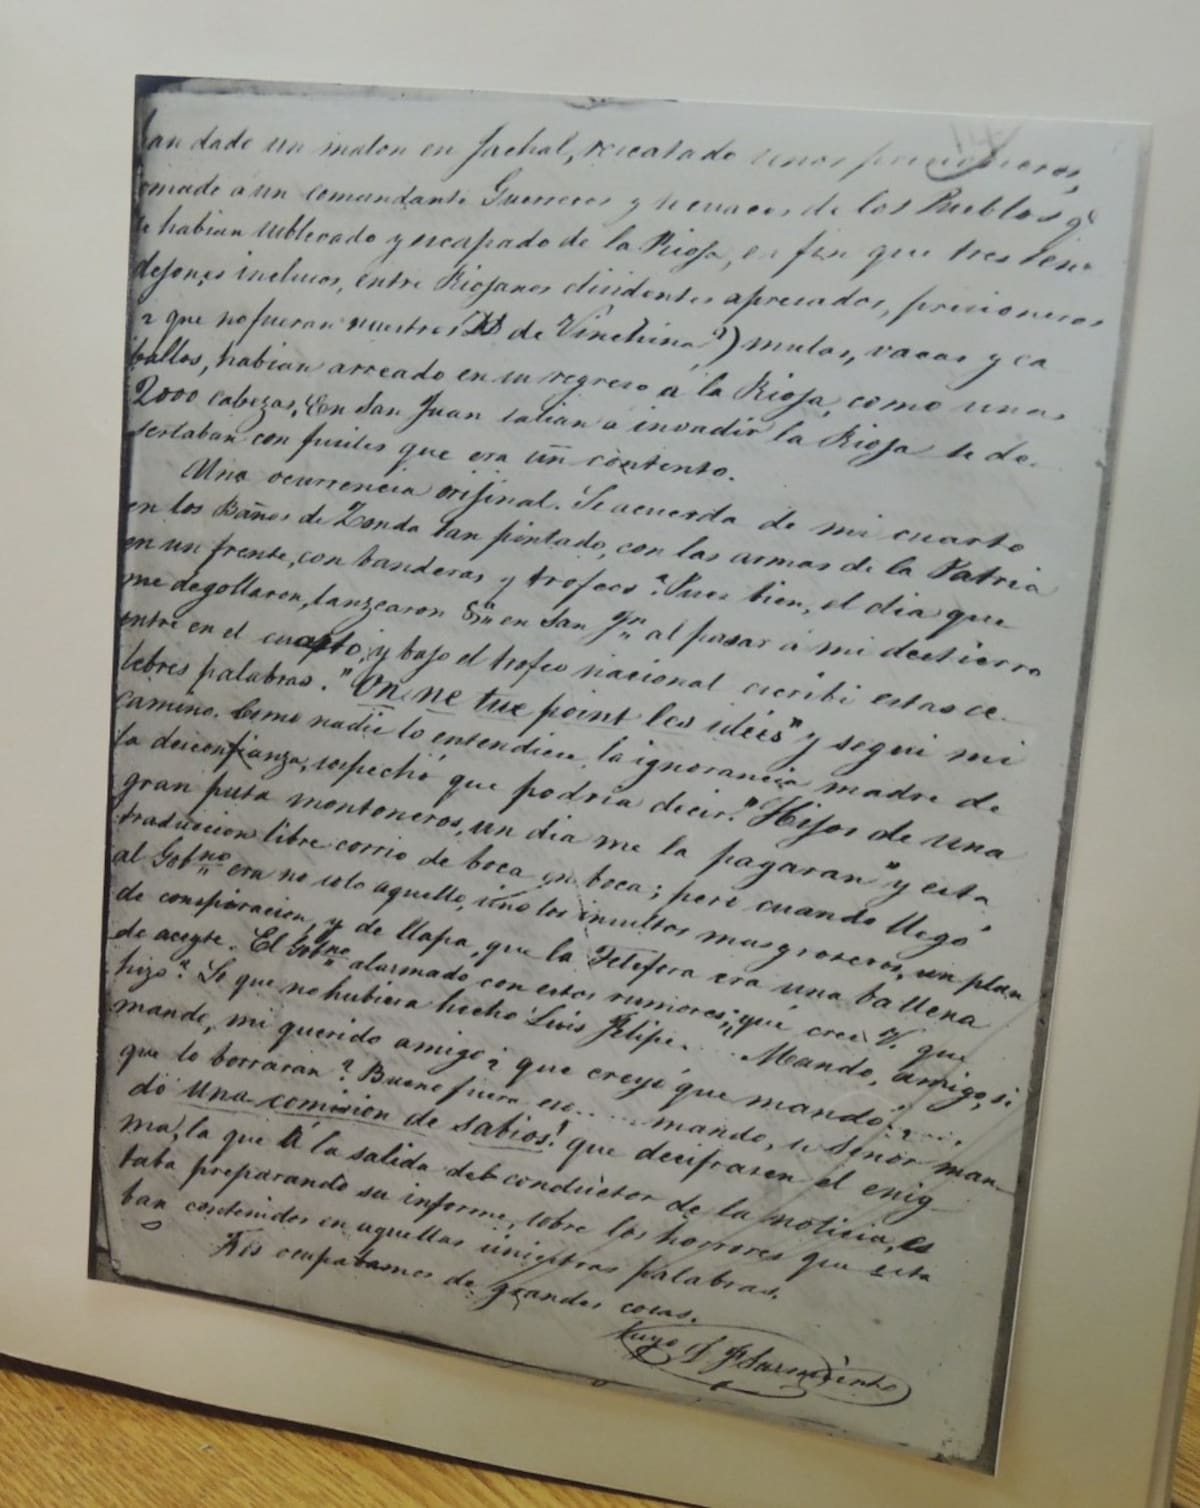 han dado un malon en Jachal, rescatado unos prisioneros,
omado a un comandante Guerreros y secuaces de los Pueblos q.e
se habian sublevado y escapado de la Rioja, en fin que tres
desonjes inclusos, entre Riojanos disidentes apresados, prisioneros
¿ que no fueran nuestros de Vinchina?) mulas, vacas y ca
ballos, habian arreado en su regreso a la Rioja, como unas
2000 cabezas, En San Juan salian a invadir la Rioja se de-
sertaban con fusiles que era un contento.
Una ocurrencia orijinal. Se acuerda de mi cuarto
en los Baños de Zonda tan pintado, con las armas de la Patria
en un frente, con banderas y trofeos? Pues bien, el dia que
me degollaron, lanzearon en San Jn al pasar a mi destierro
entre en el cuarto, y bajo el trofeo nacional escribi estas ce-
lebres palabras. "On ne tue point les idées" y segui mi
camino. Como nadie lo entendiera, la ignorancia madre de
la desconfianza, sospechó que podria decir. "Hijos de una
gran puta montoneros, un dia me la pagaran" y esta
traduccion libre corrio de boca en boca; pero cuando llegó
al Gobno era no solo aquello, sino los insultos mas groseros, un plan
de conspiracion, y de llapa, que la Telefera era una ballena
de aceyte. El Gobno alarmado con estos rumores; ¿qué cree V. que
hizo? Lo que no hubiera hecho Luis Felipe.... Mandó, amigo, si
mando, mi querido amigo ¿ que creyo que mandó? ....
que lo borraran? Bueno fuera eso..... mando, si Señor man-
dó una comision de sabios! que decifrasen el enig-
ma, la que a la salida del conductor de la noticia, es
taba preparando su informe, sobre los horrores que esta
ban contenidos en aquellas siniestras palabras.
Nos ocupabamos de grandes cosas.
Suyo D F Sarmiento